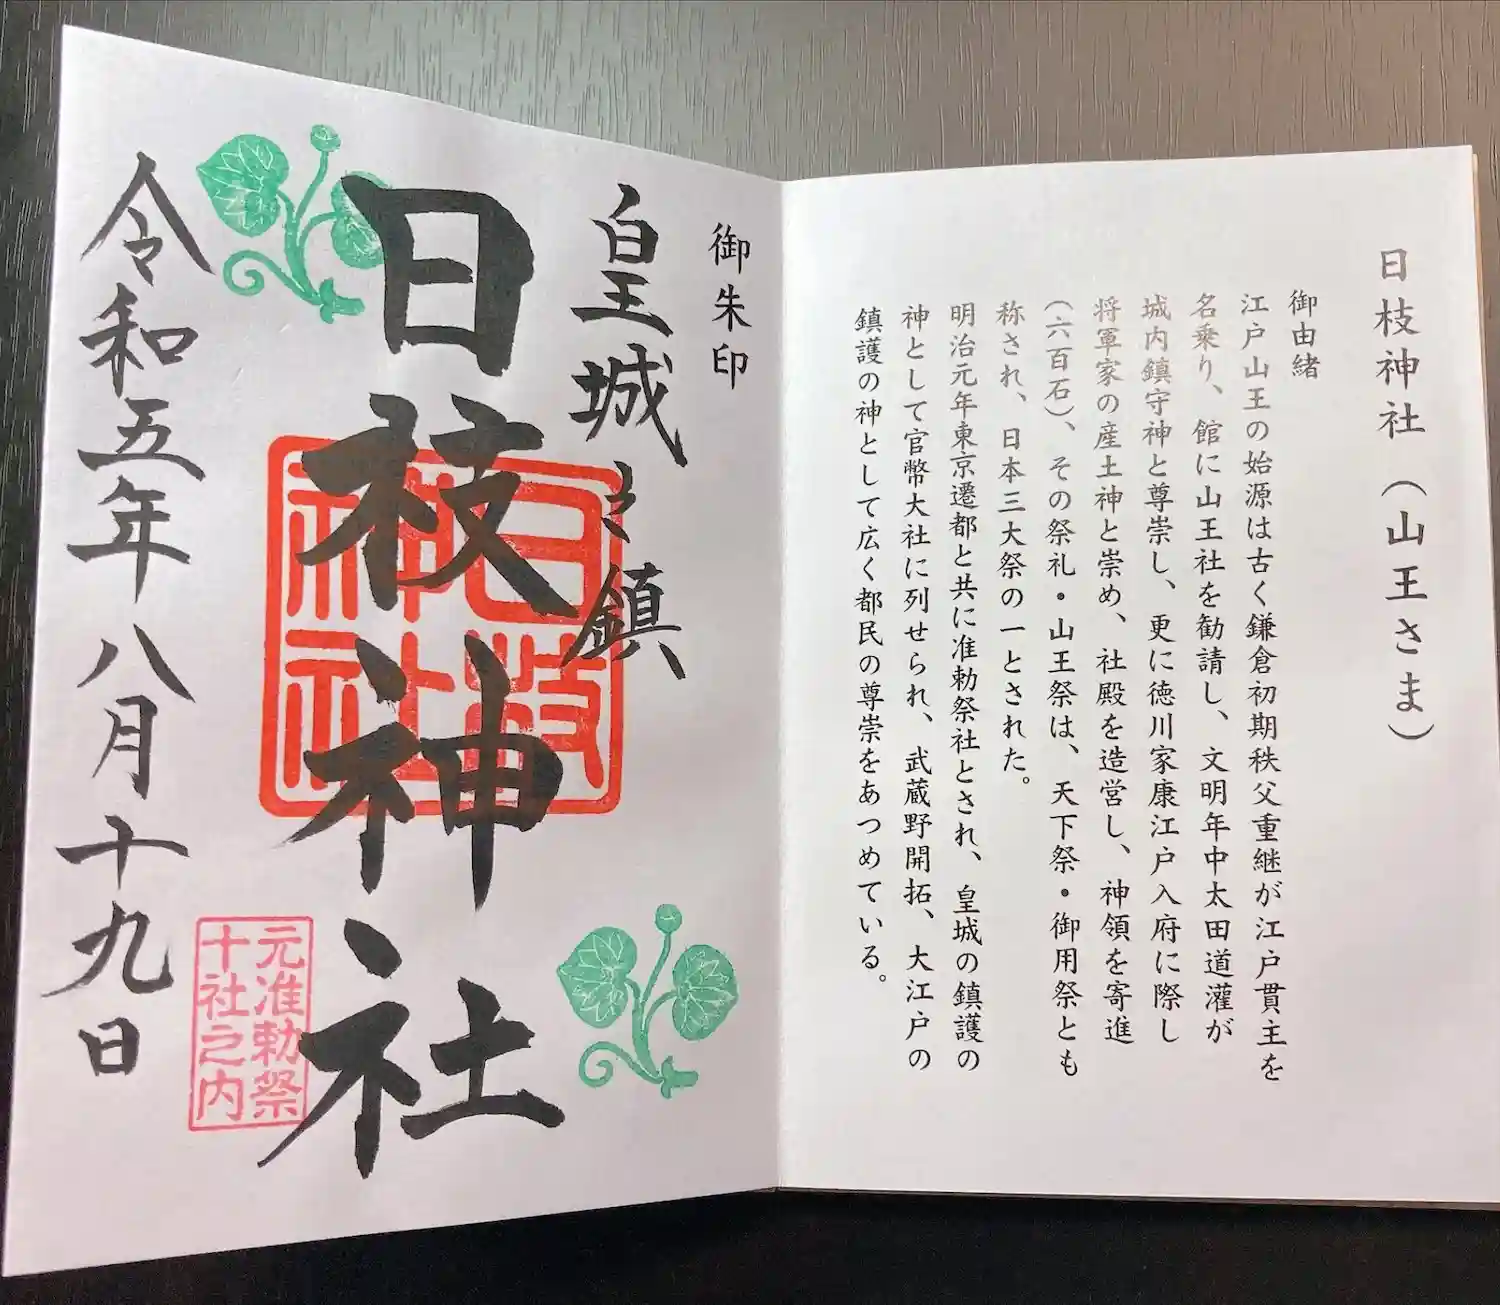 日枝神社（山王さま）
御由緒
江戸山王の始源は古く鎌倉初期秩父重継が江戸貫主を
名乗り、館に山王社を勧請し、文明年中太田道灌が
城内鎮守神と尊崇し、更に徳川家康江戸入府に際し
将軍家の産土神と崇め、社殿を造営し、神領を寄進
（六百石）、その祭礼・山王祭は、天下祭・御用祭とも
称され、日本三大祭の一とされた。
明治元年東京遷都と共に准勅祭社とされ、皇城の鎮護の
神として官幣大社に列せられ、武蔵野開拓、大江戸の
鎮護の神として広く都民の尊崇をあつめている。
御朱印
皇城之鎮
日枝神社
日枝
神社
元准勅祭
十社之内
令和五年八月十九日